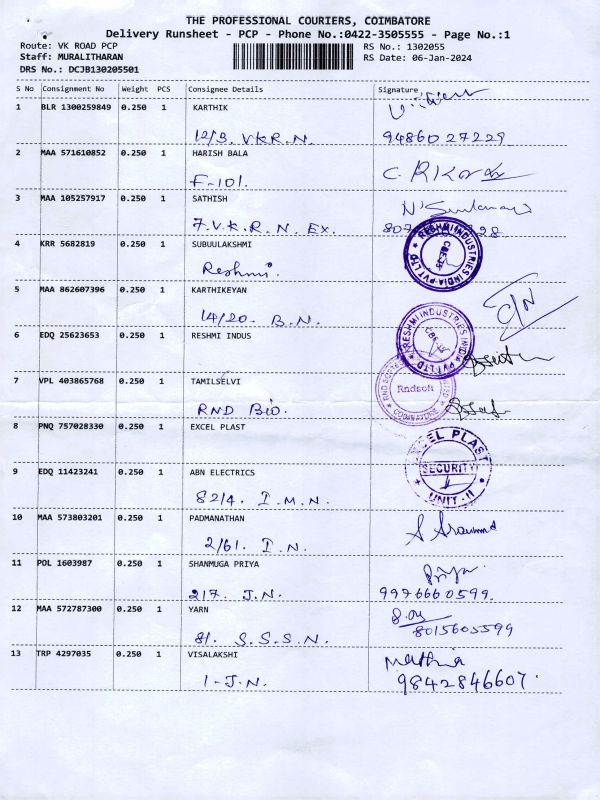 THE PROFESSIONAL COURIERS, COIMBATORE
Delivery Runsheet - PCP - Phone No.:0422-3505555 - Page No.:1
Route: VK ROAD PCP RS No.: 1302055
Staff: MURALITHARAN RS Date: 06-Jan-2024
DRS No.: DCJB130205501
S No Consignment No Weight PCS Consignee Details Signature
1 BLR 1300259849 0.250 1 KARTHIK
12/3. V.K.R.N. 9486027229
2 MAA 571610852 0.250 1 HARISH BALA
F-101.
3 MAA 105257917 0.250 1 SATHISH
7.V.K.R.N. Ex.
4 KRR 5682819 0.250 1 SUBUULAKSHMI
Reshmi. RESHMI INDUSTRIES INDIA PVT LTD
5 MAA 862607396 0.250 1 KARTHIKEYAN
14/20. B.N. C/N
6 EDQ 25623653 0.250 1 RESHMI INDUS
RESHMI INDUSTRIES INDIA PVT LTD
7 VPL 403865768 0.250 1 TAMILSELVI
RND Bio. Rndsoft
COIMBATORE
8 PNQ 757028330 0.250 1 EXCEL PLAST
EXCEL PLAST
SECURITY
UNIT-II
9 EDQ 11423241 0.250 1 ABN ELECTRICS
82/4. I.M.N.
10 MAA 573803201 0.250 1 PADMANATHAN
2/61. I.N.
11 POL 1603987 0.250 1 SHANMUGA PRIYA
Priya
217. J.N. 9976660599.
12 MAA 572787300 0.250 1 YARN
81. S.S.S.N. 8015605599
13 TRP 4297035 0.250 1 VISALAKSHI
1-J.N. 9842846607.